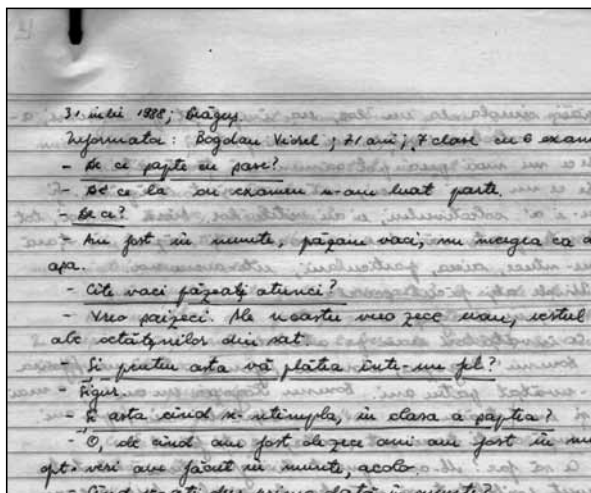 31 iulie 1988, Drăguș
Informator: Bogdan Viorel, 71 ani, 7 clase cu 6 exame
- De ce șapte cu șase?
- De ce la un examen n-am luat parte.
- De ce?
- Am fost în munte, păzam vaci, nu mergea ca a
așa.
- Cîte vaci păzeați atunci?
- Vreo șaizeci. Ale noastre vreo zece erau, restul
ale cetățenilor din sat.
- Și pentru asta vă plătea într-un fel?
- Sigur.
- Și asta cînd s-ntîmpla, în clasa a șaptea?
- O, de cînd am fost de zece ani am fost în mu
opt veri am făcut în munte, acolo.